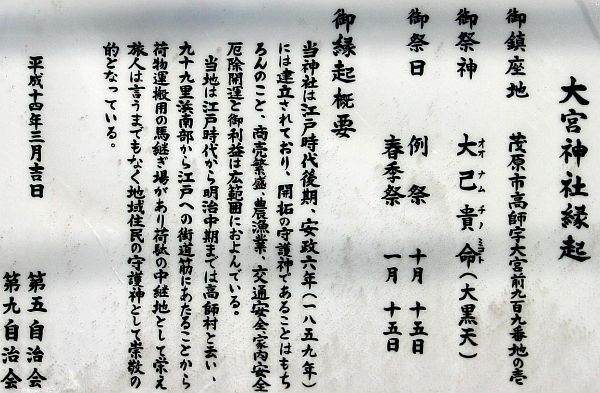 大宮神社縁起
御鎮座地 茂原市高師字大宮前九百九番地の壱
御祭神 大己貴命(大黒天)
オオナムチノミコト
御祭日 例祭 十月十五日
春季祭 一月十五日
御縁起概要
当神社は江戸時代後期、安政六年(一八五九年)
には建立されており、開拓の守護神であることはもち
ろんのこと、商売繁盛、農漁業、交通安全、家内安全
厄除開運と御利益は広範囲におよんでいる。
当地は江戸時代から明治中期までは高師村と云い、
九十九里浜南部から江戸への街道筋にあたることから
荷物運搬用の馬継ぎ場があり荷駄の中継地として栄え
旅人は言うまでもなく地域住民の守護神として崇敬の
的となっている。
平成十四年三月吉日
第五自治会
第九自治会